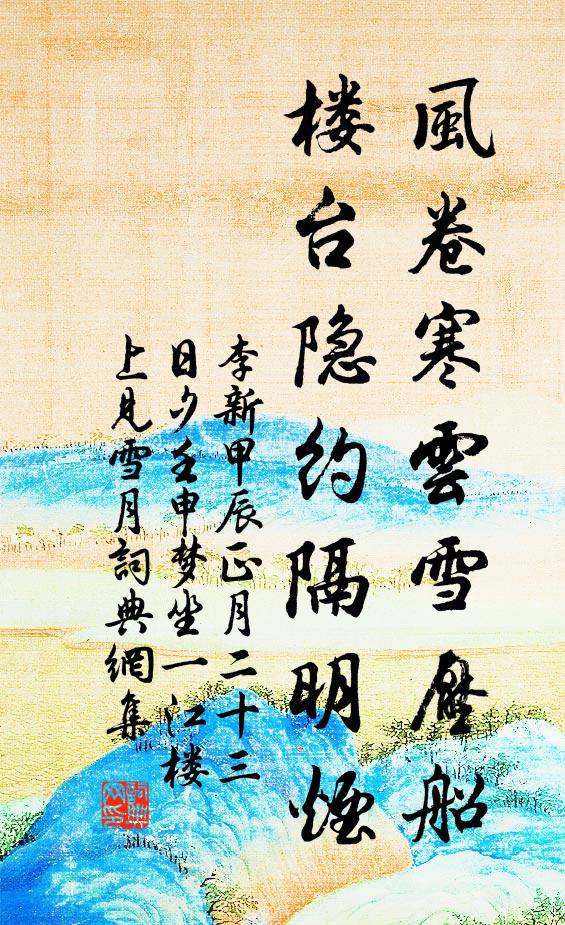 風卷寒雲雪壓船
楼台隐约隔明煙
李新甲辰正月二十三
日夕壬申梦坐一江楼
上見雪月詞典網集